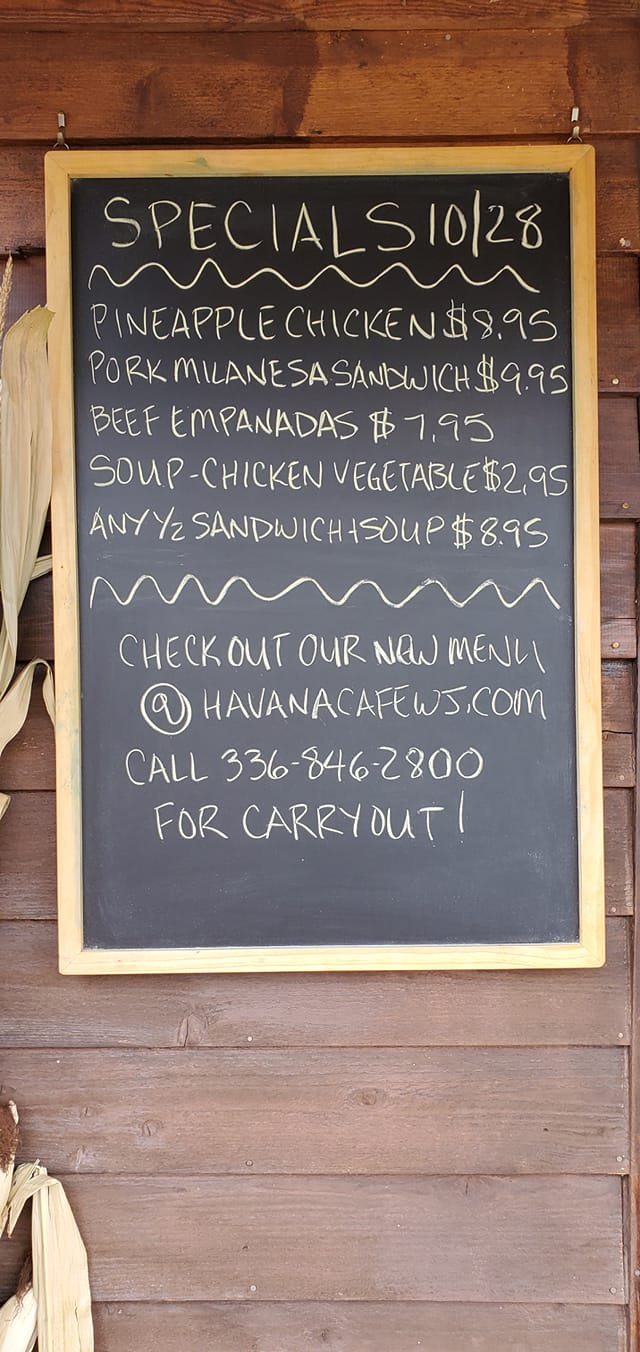 SPECIALS 10/28
PINEAPPLE CHICKEN $8.95
PORK MILANESA SANDWICH $9.95
BEEF EMPANADAS $7.95
SOUP-CHICKEN VEGETABLE $2.95
ANY 1/2 SANDWICH+SOUP $8.95
CHECK OUT OUR NEW MENU
@ HAVANACAFEWJ.COM
CALL 336-846-2800
FOR CARRYOUT!